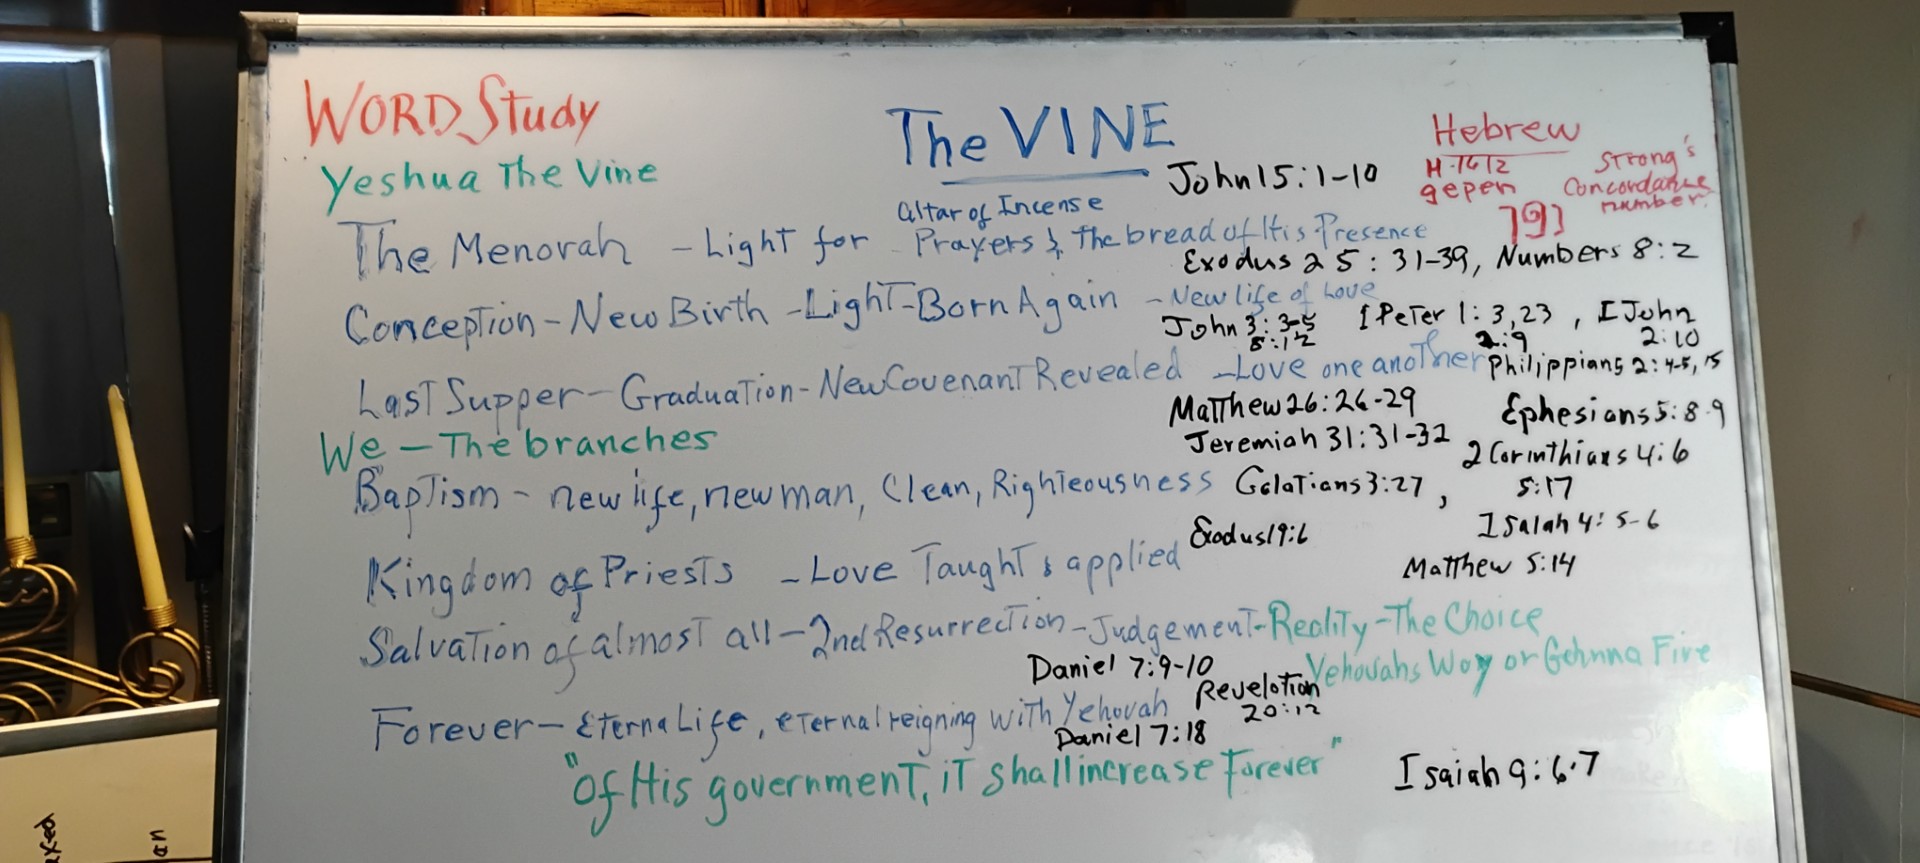 WORD Study
The VINE
Hebrew
Yeshua The Vine
John 15:1-10
H-1612
gepen
Strong's
Concordance
number
גפן
altar of Incense
The Menorah - Light for Prayers & the bread of His Presence
Exodus 25:31-39, Numbers 8:2
Conception - New Birth - Light - Born Again - New life of Love
John 3:3-5
8:12
I Peter 1:3,23
2:9
, I John
2:10
Last Supper - Graduation - New Covenant Revealed - Love one another
Philippians 2:4-5, 15
Matthew 26:26-29
Ephesians 5:8-9
We - The branches
Jeremiah 31:31-32
2 Corinthians 4:6
5:17
Baptism - new life, new man, Clean, Righteousness
Galatians 3:27,
Isaiah 4:5-6
Exodus 19:6
Kingdom of Priests - Love Taught & applied
Matthew 5:14
Salvation of almost all - 2nd Resurrection - Judgement - Reality - The Choice
Yehovahs Way or Gehnna Fire
Daniel 7:9-10
Revelation
20:12
Forever - Eternal Life, eternal reigning with Yehovah
Daniel 7:18
"Of His government, it shall increase Forever"
Isaiah 9:6-7